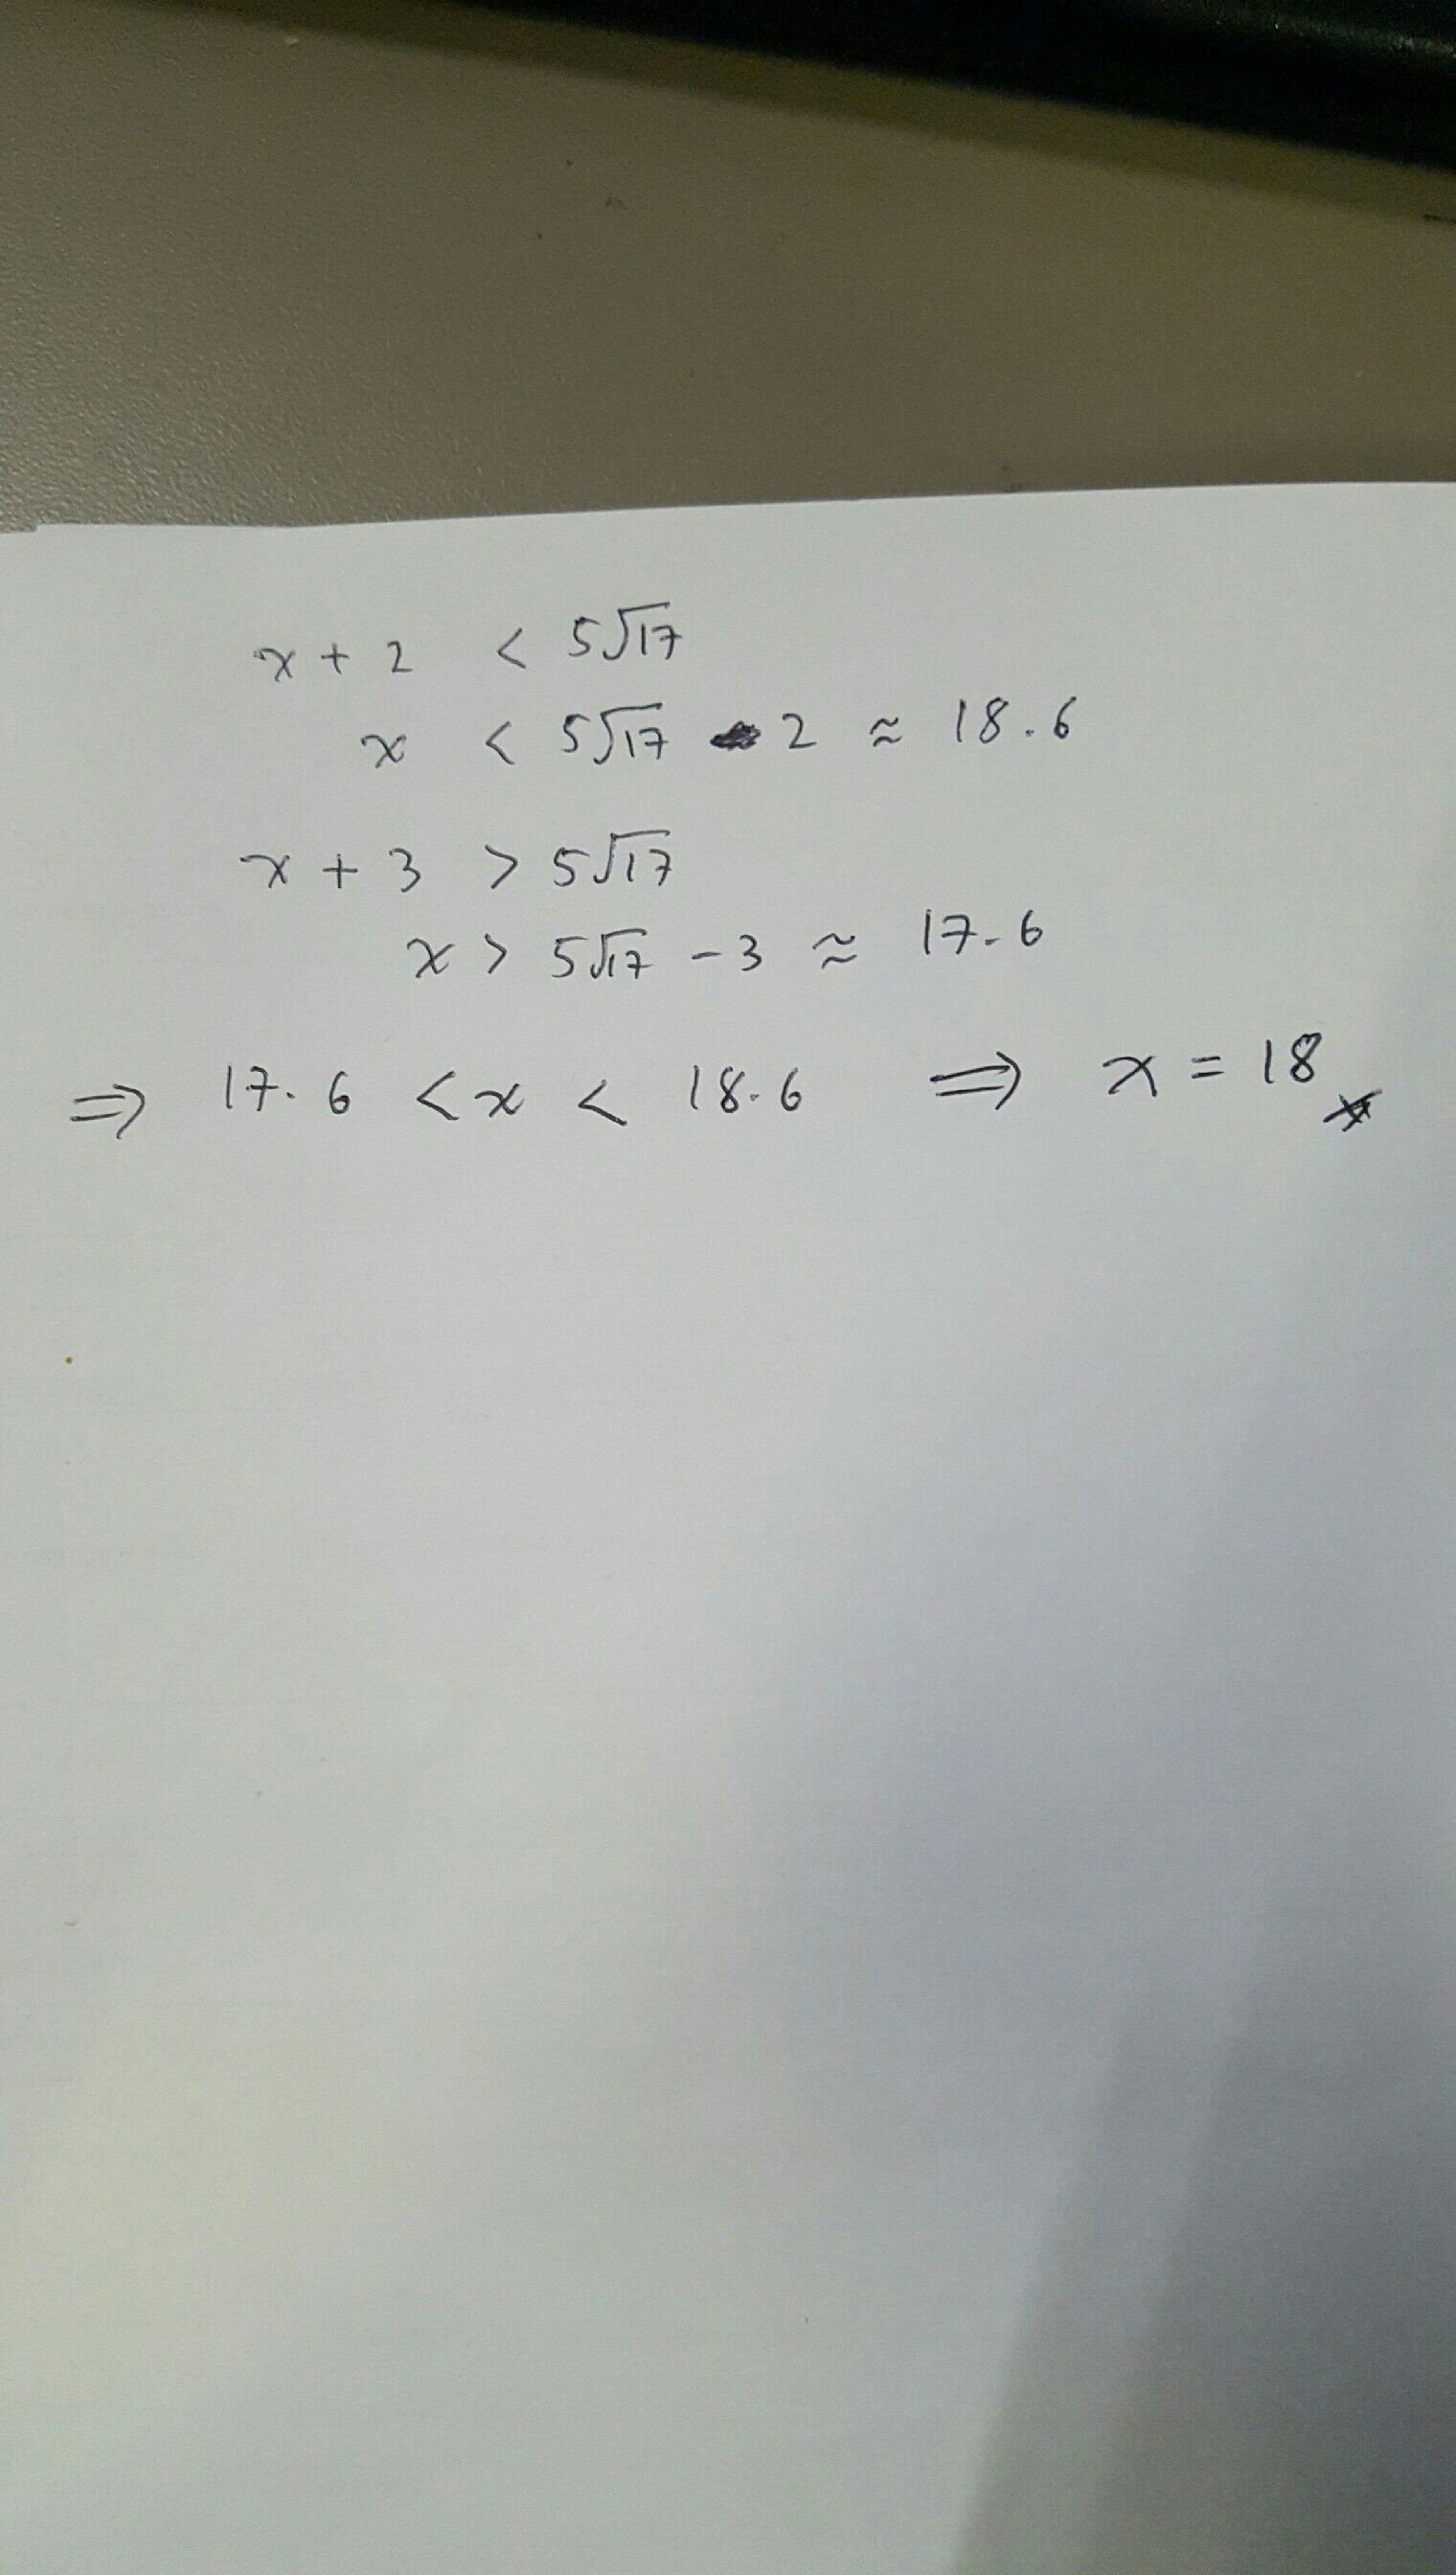 x + 2 < 5√17
x < 5√17 - 2 ≈ 18.6
x + 3 > 5√17
x > 5√17 - 3 ≈ 17.6
⇒ 17.6 < x < 18.6 ⇒ x = 18